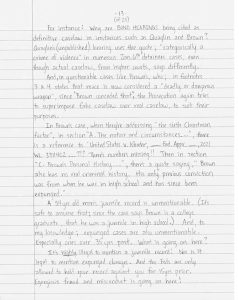 -13
(of 23)
For instance: Why are BOND HEARINGS being cited as
definitive caselaw in instances such as Quaglin and Brown?
Quaglin's (unpublished) hearing uses the quote; "categorically a
crime of violence" in numerous Jan. 6th detainee cases, even
though actual caselaw, from higher courts, says differently.
And, in questionable cases like Brown's, who; in footnotes
3 & 4 states that mace is now considered a "deadly or dangerous
weapon", since "Brown decided that", the Prosecution again tries
to superimpose fake caselaw over real caselaw, to suit their
purposes.
In Brown's case, when Haught addressing "the sixth Chrestman
factor", in section "A. The nature and circumstances...", there
is a reference to "United States v. Klein, Fed. Appx. , 2021
WL 3714662, *1"! Them numbers missing!! Then in section
"C. Brown's Personal history...", there's a quote saying, "Brown
also has no real criminal history. His only previous conviction
was from when he was in high school and has since been
expunged."
A 35 yr old man's juvenile record is unmentionable. (It's
safe to assume that, since the case says Brown is a college
graduate, that he was a juvenile in high school). And, to
my knowledge, expunged cases are also unmentionable.
Especially ones over 15 yrs. past. What is going on here?
It is highly illegal to mention a juvenile record! Nor is it
legal to mention expunged charges. And the feds are only
allowed to hold your record against you for 15 yrs. prior.
Egregious fraud and misconduct is going on here!